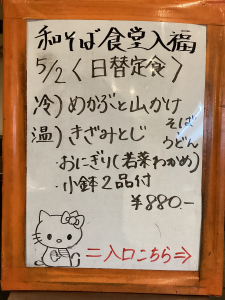 和そば食堂入福
5/2〈日替定食〉
冷)めかぶと山かけ
そば
温)きざみとじ
うどん
・おにぎり(若菜わかめ)
・小鉢2品付
¥880-
=入口こちら⇒